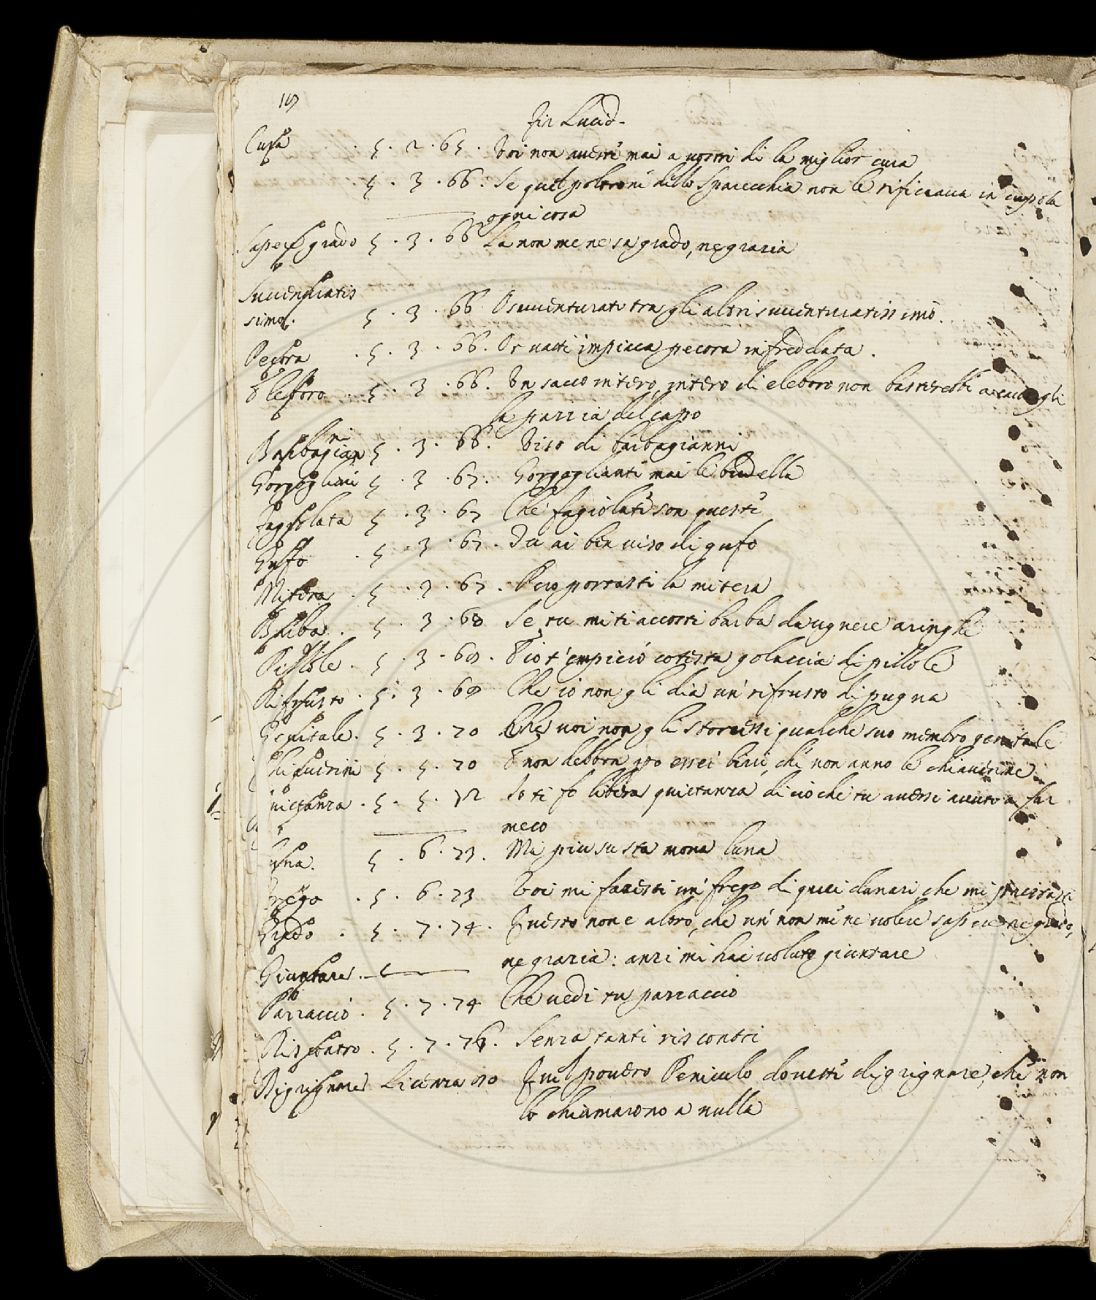 Fir. Lucid.
5. 2. 65. Voi non avesti mai a vostri dì la miglior cura
5. 3. 66. Se quel poltrone dello Sparecchia non le rificcava in
ogni cosa
Saper grado 5. 3. 66 La non me ne sa grado, ne grazia
Svventuratis
simo. 5. 3. 66 O svventurato tra gli altri svventuratissimo.
Pecora . 5. 3. 66. Or vatti impicca pecora infreddata.
Elleboro 5. 3. 66. Un sacco intero, intero di eleboro non basterebbe a cavargli
la pazzia del capo
Barbagianni 5. 3. 66. Viso di barbagianni
5. 3. 67. mai le budella
Fagiolata 5. 3. 67 Che fagiolate son queste
Gufo . 5. 3. 67. Tu ai ben viso di gufo
Mitera . 5. 3. 67. Però porrasti la mitera
Barba . 5. 3. 68 Se tu mi ti accosti barba da ugnere aringhe
Pillole . 5. 3. 68. S'io t'empierò cotesta golaccia di pillole
Rifrusto . 5. 3. 69 Che io non gli dia un rifrusto di pugna
Genitale . 5. 3. 70 Che voi non gli storcessi qualche suo membro genitale
Chiaverini 5. 5. 70 E non debbon esser birri, che non anno le chiaverine
Quietanza . 5. 5. 72 Io ti fo libera quietanza di ciò che tu avessi avuto a far
meco
Luna. 5. 6. 73. Ma più su sta mona luna
Frego . 5. 6. 73 Voi mi faresti un frego di quei danari che mi
Grado . 5. 7. 74. Questo non è altro, che un non me ne voler saper ne grado,
Giuntare. ne grazia: anzi mi hai voluto giuntare
Pazzaccio . 5. 7. 74 Che vedi tu pazzaccio
Riscontro . 5. 7. 76. Senza tanti riscontri
Digrignare Licenza Quel povero Peniculo dovette digrignare, che non
lo chiamarono a nulla